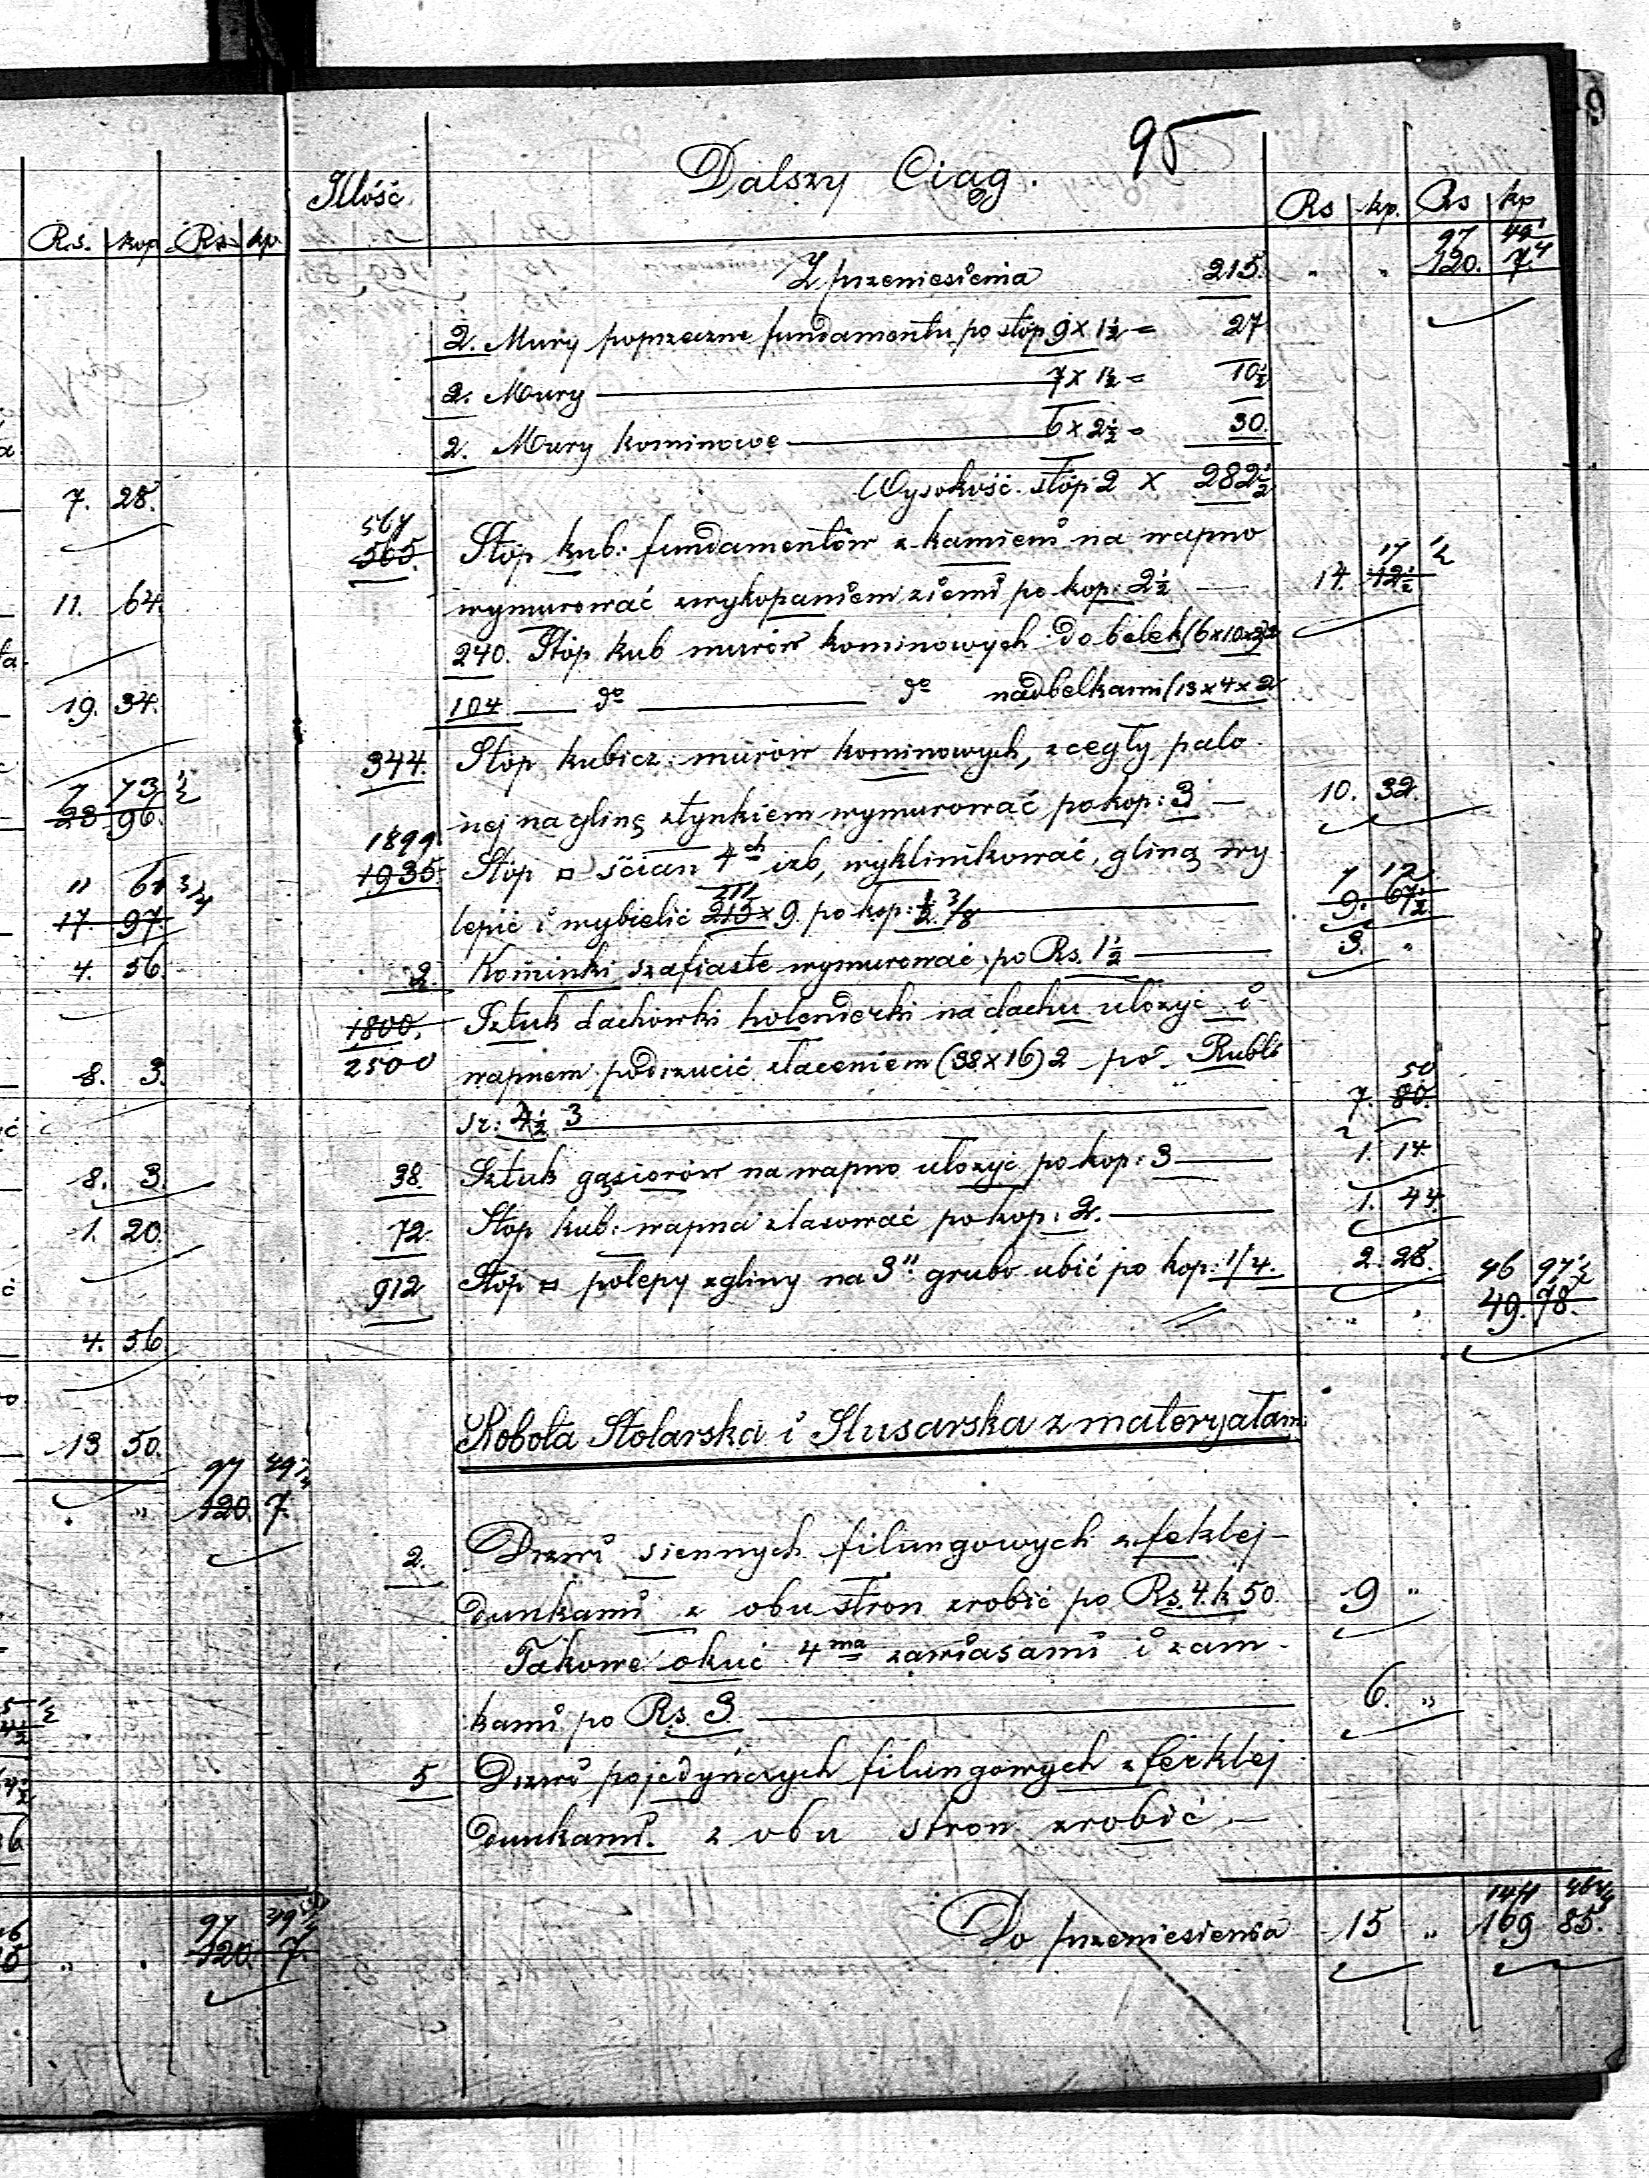 R.s. kop Rs kp.
7. 28.
11. 64.
19. 34.
7 73 1/2
28 96.
11 61 3/4
17. 97.
4. 56.
8. 3.
8. 3.
1. 20.
4. 56
13 50.
97 49 1/4
120. 7.
97 49 1/4
120. 7.
95
Dalszy Ciąg.
Illość Rs kp. Rs kp
97 49 1/4
Z przeniesienia 215. " " 120. 7.
2. Mury poprzeczne fundamentu po stóp 9 x 1 1/2 = 27
2. Mury 7 x 1 1/2 = 10 1/2
2. Mury kominowe 6 x 2 1/2 = 30.
Wysokość stóp 2 x 282 1/2
567
565. Stóp kub: fundamentów z kamieni na wapno 17 1/2
wymurować z wykopaniem ziemi po kop: 2 1/2 14. 12 1/2
240. Stóp kub murów kominowych do belek (6x10x2)2
104 do do nad belkami (13 x 4 x 2
344. Stóp kubicz: murów kominowych, z cegły palo-
nej na glinę z tynkiem wymurować po kop: 3 10. 32.
1899
1935. Stóp □ ścian 4ch izb, wyklinikować, gliną wy- 7 12
211
lepić i wybielić 215 x 9. po kop: 1/2 3/8 9. 67 1/2
2. Kominki szafiaste wymurować po Rs. 1 1/2 3. "
1800. Sztuk dachówki holenderki na dachu ułożyć i
2500 wapnem podrzucić z łaceniem (38 x 16) 2 po Rubli
50
sr: 4 1/2 3 7. 80.
38. Sztuk gąsiorów na wapno ułożyć po kop: 3 1. 14.
72 Stóp kub: wapna zlasować po kop: 2. 1. 44.
912 Stóp □ polepy z gliny na 3" grubo ubić po kop: 1/4. 2. 28. 46 97 1/2
" . 49. 78.
Robota Stolarska i Slusarska z materyałam
2. Drzwi siennych filungowych z feklej-
dunkami z obu stron zrobić po Rs. 4. k 50. 9 "
Takowe okuć 4ma zawiasami i zam-
kami po Rs. 3. 6. "
5 Drzwi pojedyńczych filungowych z ferklej
dunkami z obu stron zrobić
144 46 3/4
Do przeniesienia 15 " 169 85.